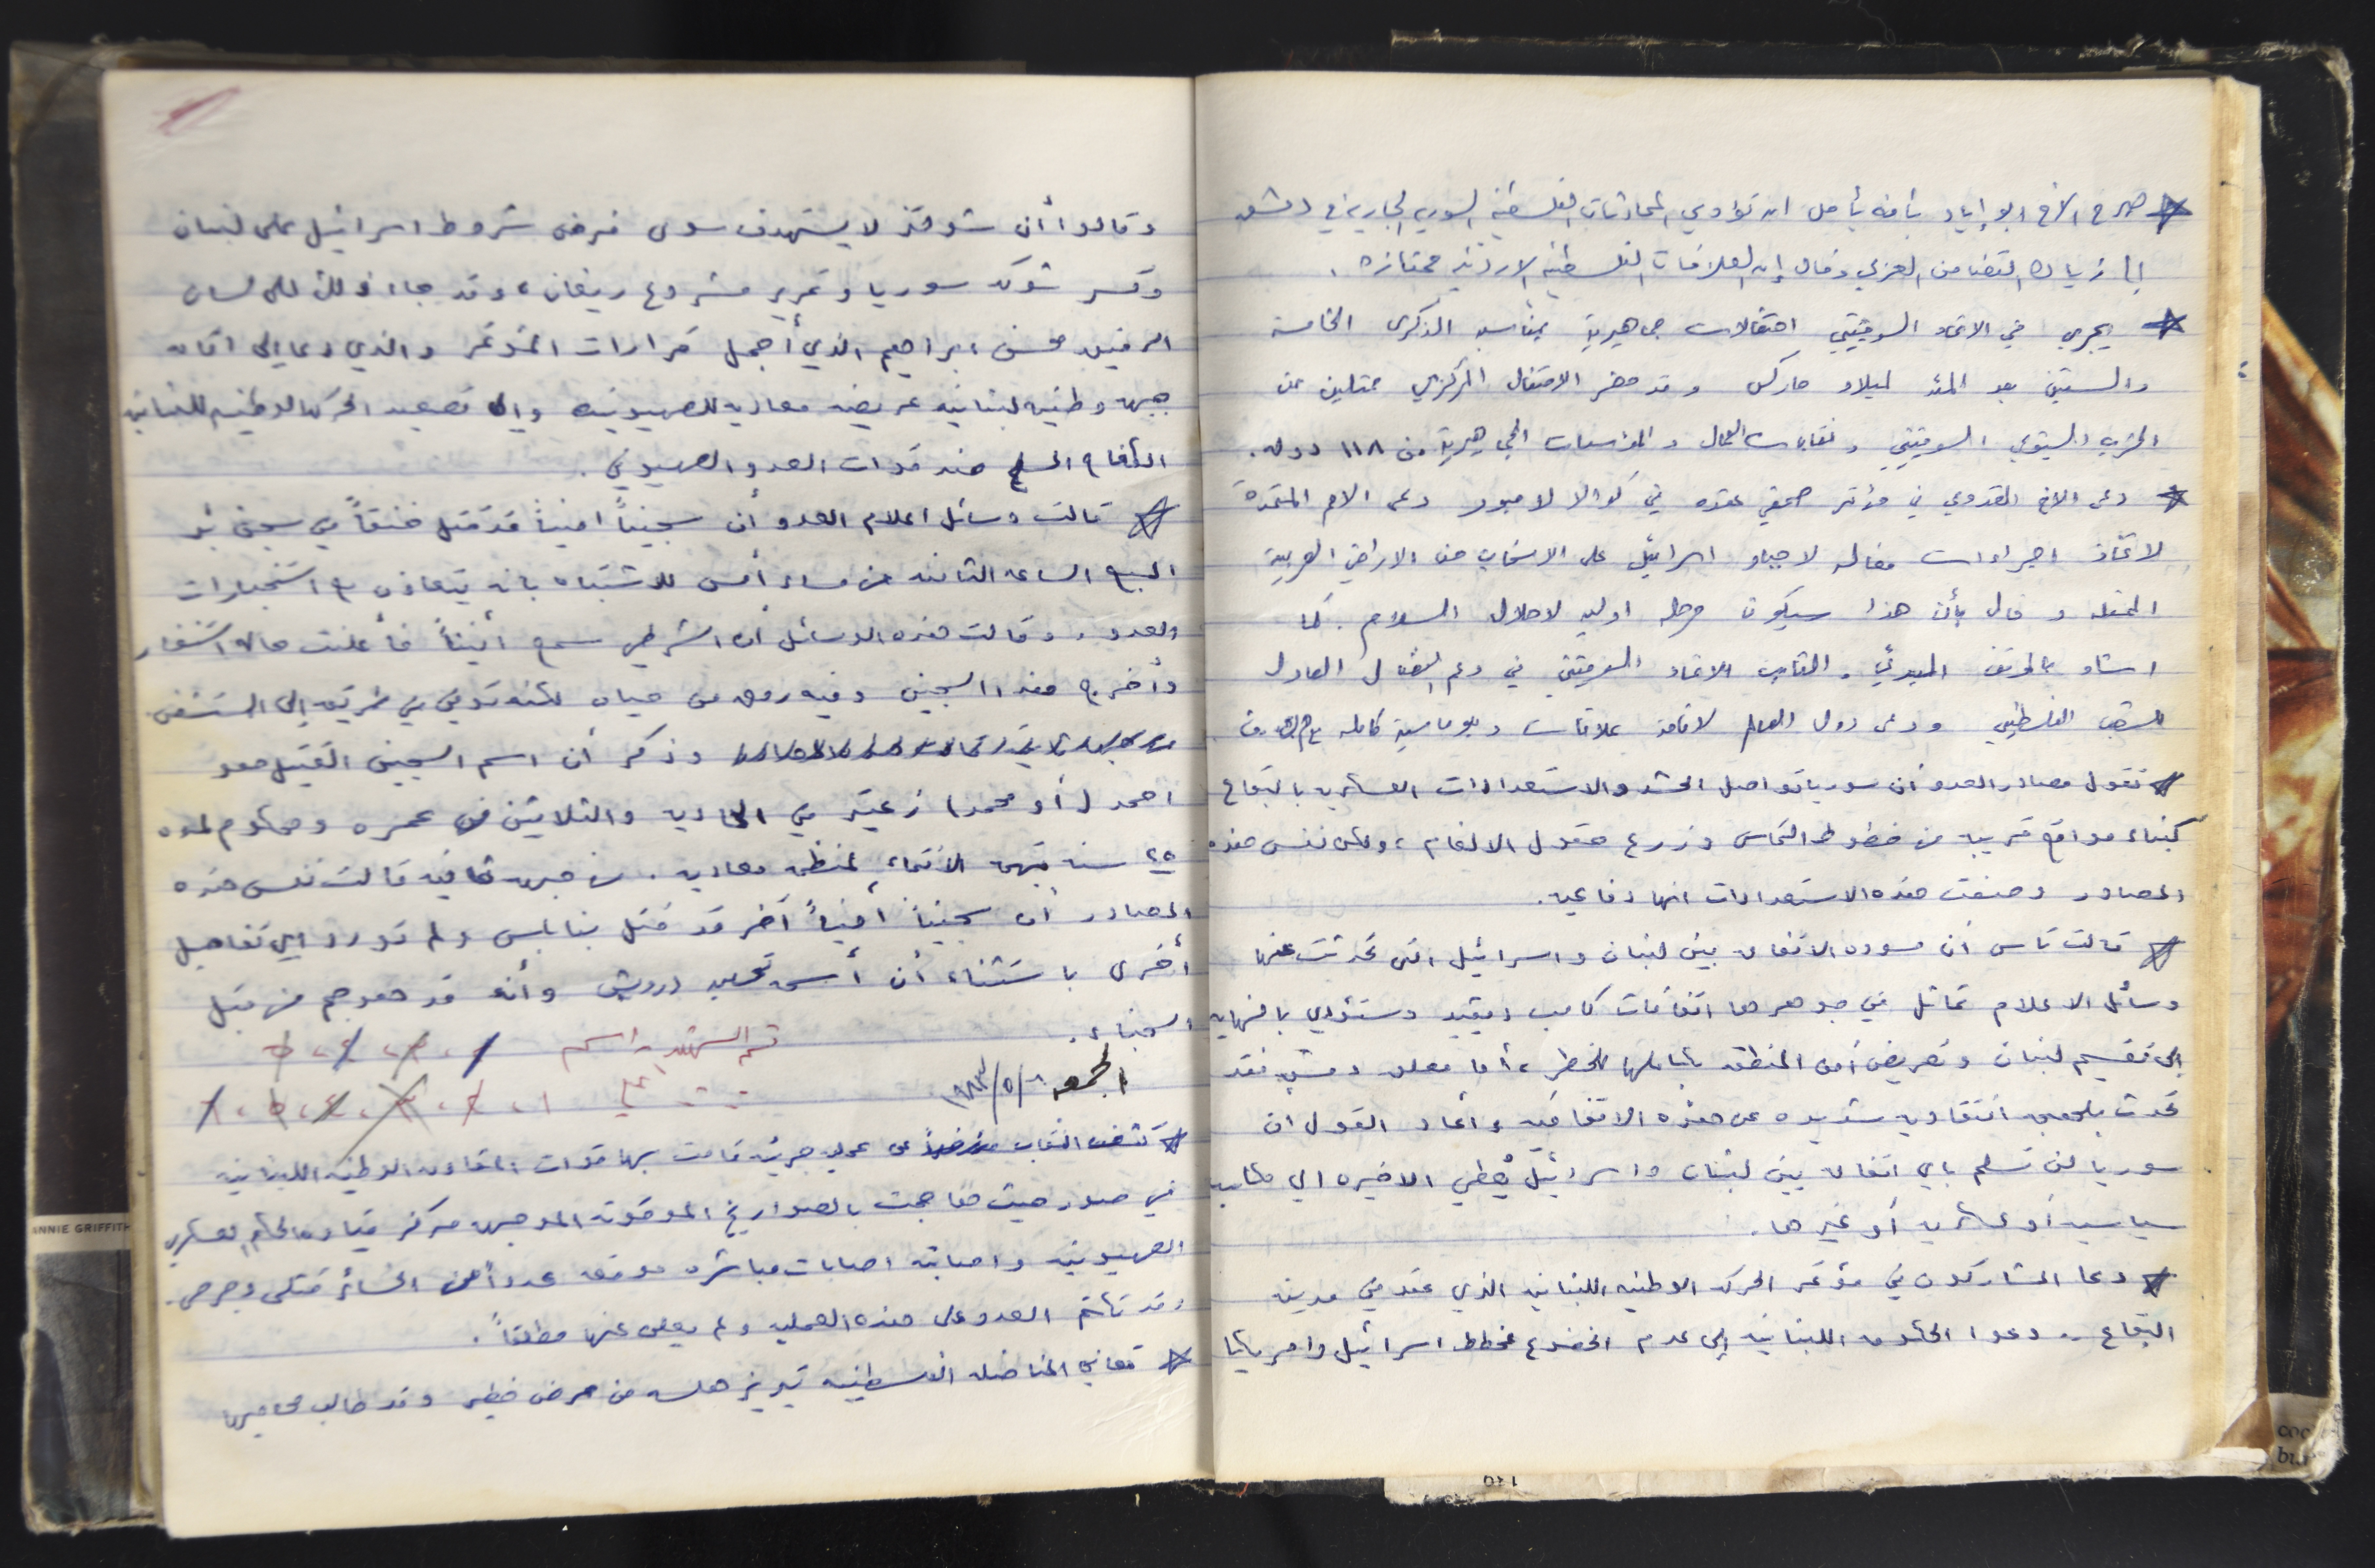 ☆ صرح الاخ ابو إياد بأنه يأمل ان تؤدي المحادثات الفلسطينية السورية الجارية في دمشق
إلى زيادة التضامن العربي وقال إن العلاقات الفلسطينية الاردنية ممتازة .
☆ يجري في الاتحاد السوفييتي احتفالات جماهيرية بمناسبة الذكرى الخامسة
والستين بعد المئة لميلاد ماركس وقد حضر الاحتفال المركزي ممثلين عن
الحزب الشيوعي السوفييتي ونقابات العمال والمؤسسات الجماهيرية من ١١٨ دولة .
☆ دعى الاخ القدومي في مؤتمر صحفي عقده في كوالا لامبور دعى الامم المتحدة
لاتخاذ اجراءات فعاله لاجبار اسرائيل على الانسحاب من الاراضي العربية
المحتله و قال بأن هذا سيكون مرحله اوليه لاحلال السلام . كما
اشاد بالموقف المبدئي و الثابت للاتحاد السوفييتي في دعم النضال العادل
للشعب الفلسطيني ودعى دول العالم لاقامة علاقات دبلوماسية كامله مع م.ت.ف
☆ تقول مصادر العدو أن سوريا تواصل الحشد والاستعدادات العسكريه بالبقاع
كبناء مواقع قريبه من خطوط التماس وزرع حقول الالغام ، ولكن نفس هذه
المصادر وصفت هذه الاستعدادات انها دفاعيه .
☆ قالت تاس أن مسوده الاتفاق بين لبنان واسرائيل التي تحدثت عنها
وسائل الاعلام تماثل في جوهرها اتفاقات كامب ديفيد وستؤدي بالنهايه
إلى تقسيم لبنان وتعريض أمن المنطقه بكاملها للخطر ، أما معلق دمشق فقد
تحدث بلهجه انتقاديه شديده عن هذه الاتفاقيه وأعاد القول ان
سوريا لن تسلم باي اتفاق بين لبنان واسرائيل يعطي الاخيره اي مكاسب
سياسيه أو عسكريه أو غيرها .
☆ دعا المشاركون في مؤتمر الحركه الوطنيه اللبنانيه الذي عقد في مدينة
البقاع .. دعوا الحكومه اللبنانيه إلى عدم الخضوع لخطط اسرائيل وامريكا
وقالوا أن شولتز لا يستهدف سوى فرض شروط اسرائيل على لبنان
وكسر شوكة سوريا وتمرير مشروع ريغان ، وقد جاء ذلك على لسان
الرفيق محسن ابراهيم الذي أجمل قرارات المؤتمر والذي دعا إلى اقامة
جبهه وطنيه لبنانيه عريضه معاديه للصهيونيه وإلى تصعيد الحركه الوطنيه اللبنانيه
الكفاح المسلح ضد قوات العدو الصهيوني .
☆ قالت وسائل اعلام العدو أن سجيناً امنياً قد قتل خنقاً في سجن بئر
السبع الساعه الثامنه من مساء أمس للاشتباه بانه يتعاون مع استخبارات
العدو . وقالت هذه الوسائل ان الشرطي سمع أنيناً فأعلنت حالة استنفار
وأخرج هذا السجين وفيه رمق من حياه لكنه توفي في طريقه إلى المستشفى
وذكر أن اسم السجين القتيل هو
احمد (أو محمد) زعيتر في الحاديه والثلاثين من عمره ومحكوم لمده
٢٥ سنه بتهمة الانتماء لمنظمه معاديه . من جهه ثانيه قالت نفس هذه
المصادر أن سجيناً أمنياً آخر قد قتل بنابلس ولم تورد اي تفاصيل
أخرى باستثناء أن أسمه درويش وأنه قد هوجم من قبل
السجناء .
الجمعه ٦/٥/١٩٨٣
☆ كشف النقاب عن عمليه جريئه قامت بها قوات المقاومه الوطنيه اللبنانيه
في صور حيث هاجمت بالصواريخ الموقوته الموجهه مركز قياده الحكم العسكري
الصهيونيه واصابته اصابات مباشره موقعه عدداً من الخسائر قتلى وجرحى .
وقد تكتم العدو على هذه العمليه ولم يعلن عنها مطلقاً .
☆ تعاني المناضله الفلسطينيه تيريز هلسه من مرض خطير وقد طالب محاميها